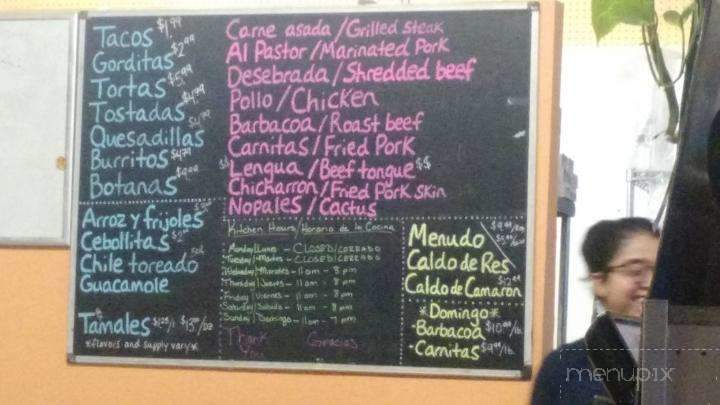 Tacos $1.99
Gorditas $2.99
Tortas $5.99
Tostadas $4.99
Quesadillas
Burritos
Botanas
Carne asada / Grilled steak
Al Pastor / Marinated Pork
Desebrada / Shredded beef
Pollo / Chicken
Barbacoa / Roast beef
Carnitas / Fried Pork
$$ Lengua / Beef tongue $$
Chicharron / Fried Pork skin
Nopales / Cactus
Arroz y frijoles
Cebollitas
Chile toreado
Guacamole
Tamales $1.25/1
*flavors and supply vary*
Kitchen Hours / Horario de la Cocina
Monday/Lunes - CLOSED/CERRADO
Tuesday/Martes - CLOSED/CERRADO
- 11am - 8pm
Thursday/Jueves - 11am - 8pm
Friday/Viernes - 11am - 8pm
Saturday/Sabado - 11am - 8pm
Sunday/Domingo - 11am - 7pm
Thank You Gracias
Menudo
Caldo de Res
Caldo de Camaron
*Domingo*
-Barbacoa $10.99/lb.
-Carnitas $9.99/lb.
menupix